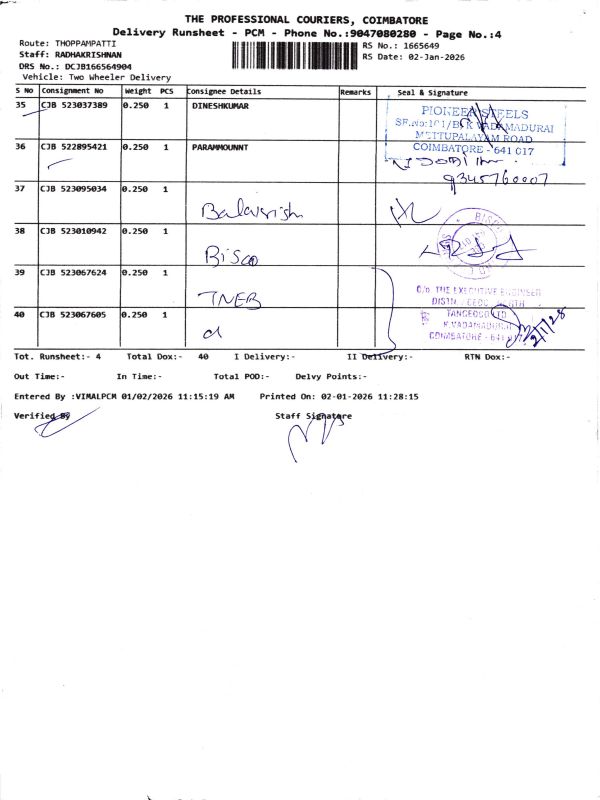 THE PROFESSIONAL COURIERS, COIMBATORE
Delivery Runsheet - PCM - Phone No.:9047080280 - Page No.:4
Route: THOPPAMPATTI
RS No.: 1665649
Staff: RADHAKRISHNAN
RS Date: 02-Jan-2026
DRS No.: DCJB166564904
Vehicle: Two Wheeler Delivery
S No Consignment No Weight PCS Consignee Details Remarks Seal & Signature
35 CJB 523037389 0.250 1 DINESHKUMAR
PIONEER STEELS
SF.No:101/B, K VADAMADURAI
METTUPALAYAM ROAD
COIMBATORE - 641 017
36 CJB 522895421 0.250 1 PARAMMOUNNT
9345760007
37 CJB 523095034 0.250 1
38 CJB 523010942 0.250 1 Bisco
BISCO
39 CJB 523067624 0.250 1 TNEB
O/o THE EXECUTIVE ENGINEER
40 CJB 523067605 0.250 1
TANGEDCO LTD
K.VADAMADURAI
COIMBATORE - 641 017
Tot. Runsheet:- 4 Total Dox:- 40 I Delivery:- II Delivery:- RTN Dox:-
Out Time:- In Time:- Total POD:- Delvy Points:-
Entered By :VIMALPCM 01/02/2026 11:15:19 AM Printed On: 02-01-2026 11:28:15
Verified By Staff Signature